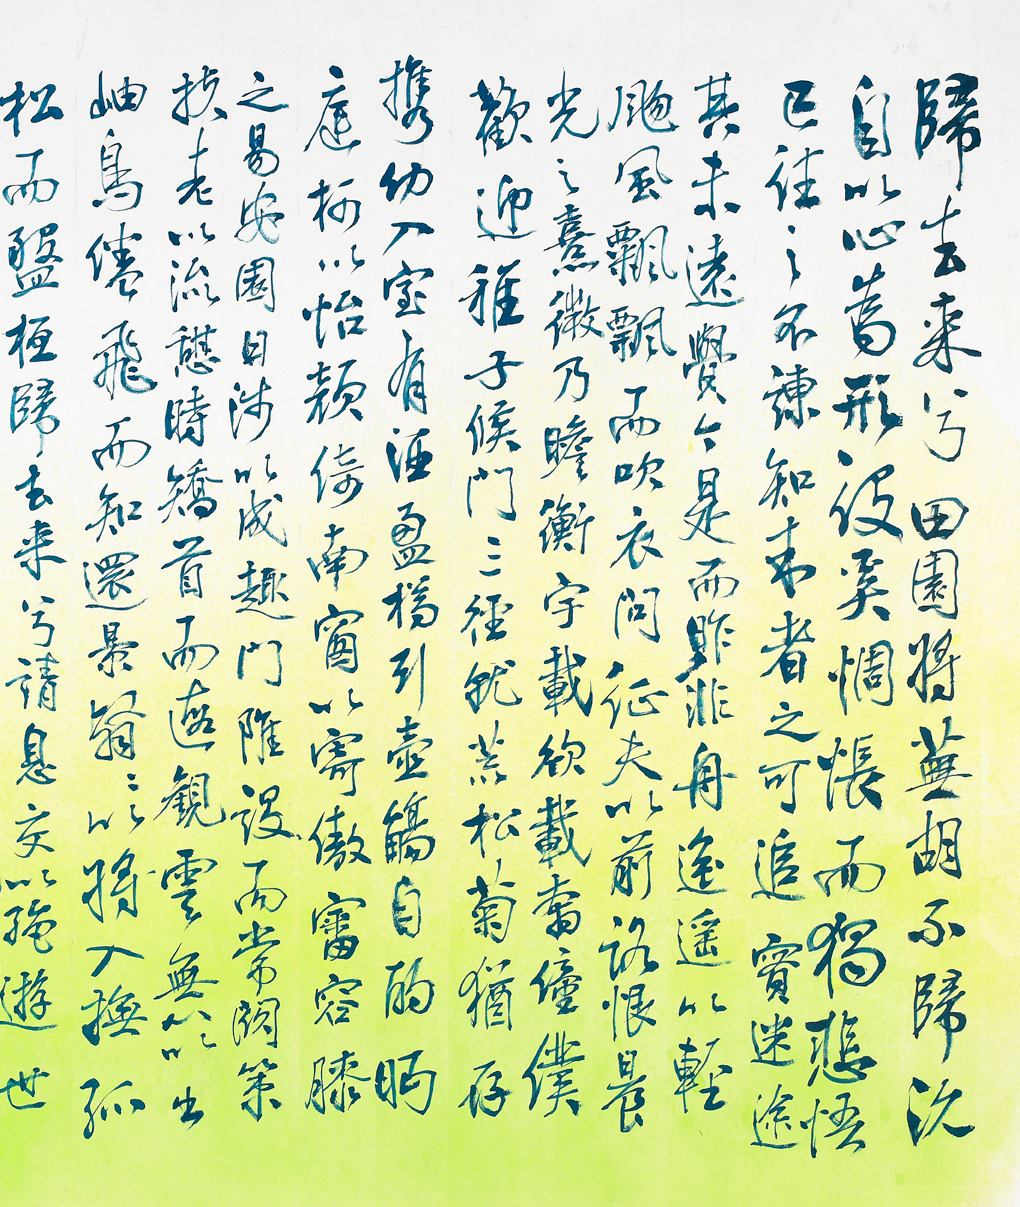 歸去来兮田園将蕪胡不歸既
自以心為形役奚惆悵而獨悲悟
已往之不諫知来者之可追實迷途
其未遠覺今是而昨非舟遙遙以輕
颺風飄飄而吹衣問征夫以前路恨晨
光之熹微乃瞻衡宇載欣載奔僮僕
歡迎稚子候門三徑就荒松菊猶存
携幼入室有酒盈樽引壺觴自酌眄
庭柯以怡顏倚南窗以寄傲審容膝
之易安園日涉以成趣門雖設而常關策
扶老以流憩時矯首而遐觀雲無心以出
岫鳥倦飛而知還景翳翳以将入撫孤
松而盤桓歸去来兮請息交以絕遊世